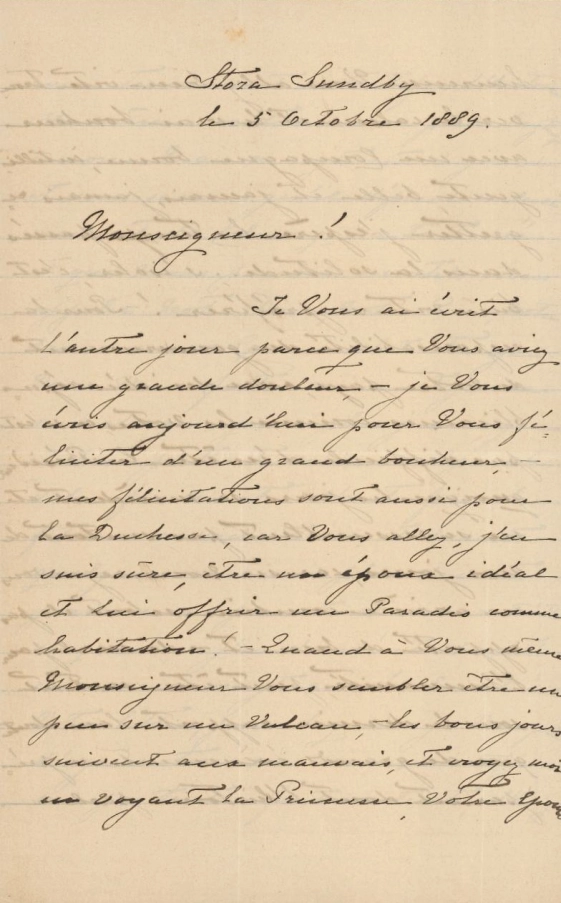 Stora Sundby
le 5 Octobre 1889.
Monseigneur!
Je Vous ai écrit
l'autre jour parce que Vous aviez
une grande douleur, – je Vous
écris aujourd'hui pour Vous fé-
liciter d'un grand bonheur, –
mes félicitations sont aussi pour
la Duchesse, car Vous allez, j'en
suis sûre, être un époux idéal
et lui offrir un Paradis comme
habitation! – Quand à Vous même
Monseigneur Vous sembler être un
peu sur un Vulcan, – les bons jours
suivent aux mauvais, et croyez moi
en voyant la Princesse, Votre Epouse